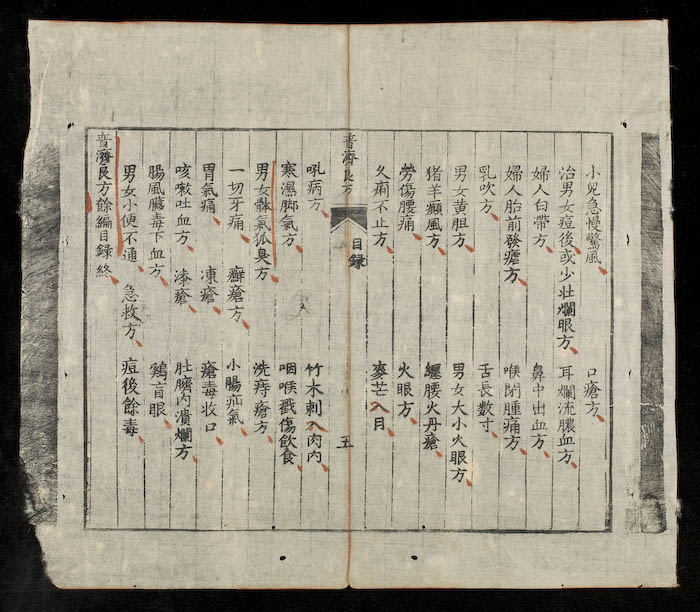 小兒急慢驚風 口瘡方
治男女痘後或少壯爛眼方 耳爛流膿血方
婦人白帶方 鼻中出血方
婦人胎前發瘧方 喉閉腫痛方
乳吹方 舌長數寸
男女黄胆方 男女大小火眼方
猪羊癲風方 纏腰火丹瘡
勞傷腰痛 火眼方
久痢不止方 麥芒入目
普濟良方 目録 五
吼病方 竹木刺入肉内
寒濕脚氣方 咽喉戳傷飲食
男女髂氣狐臭方 洗痔瘡方
一切牙痛 癬瘡方 小腸疝氣
胃氣痛 凍瘡 瘡毒收口
咳嗽吐血方 漆瘡 肚臍内潰爛方
腸風臓毒下血方 鷄盲眼
男女小便不通 急救方 痘後餘毒
普濟良方餘編目録終